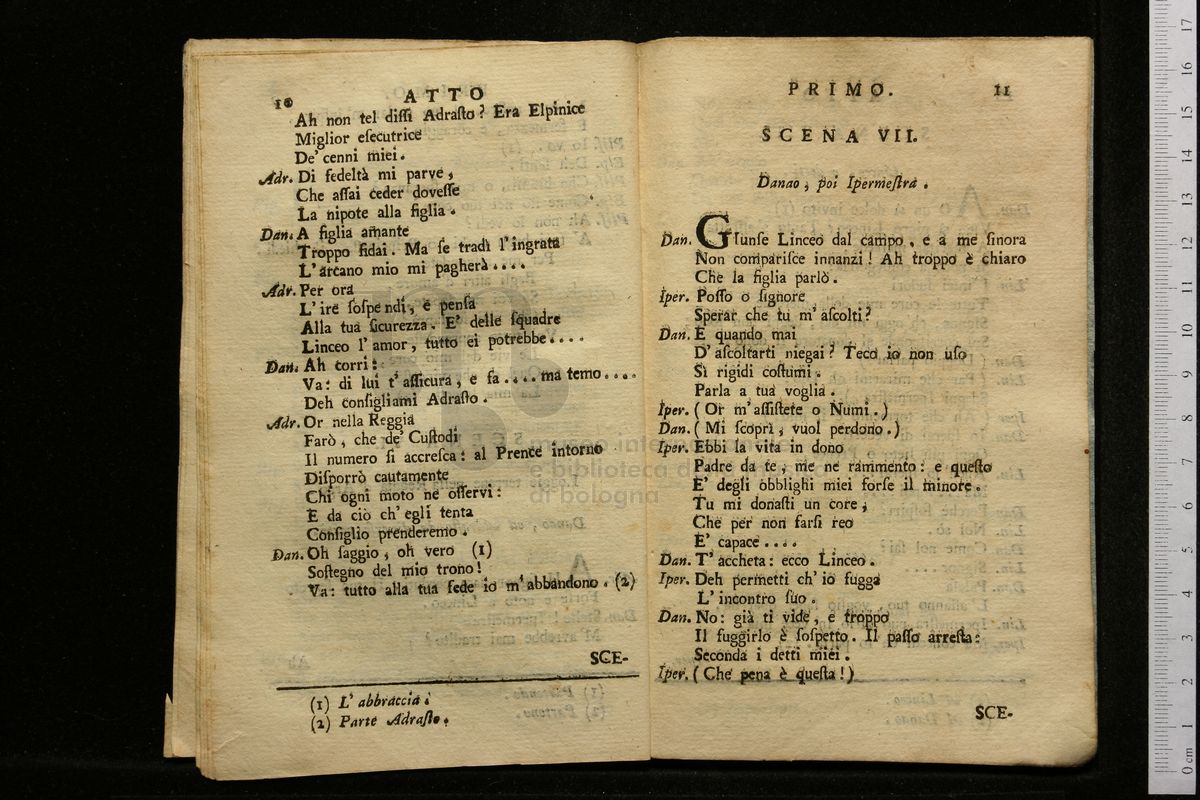 10 ATTO
Ah non tel diſſi Adraſto? Era Elpinice
Miglior eſecutrice
De' cenni miei.
Adr. Di fedeltà mi parve,
Che aſſai ceder doveſſe
La nipote alla figlia.
Dan. A figlia amante
Troppo fidai. Ma ſe tradì l'ingrata
L'arcano mio mi pagherà....
Adr. Per ora
L'ire ſoſpendi, e penſa
Alla tua ſicurezza. E' delle ſquadre
Linceo l'amor, tutto ei potrebbe....
Dan. Ah corri:
Va: di lui t'aſſicura, e fa.... ma temo....
Deh conſigliami Adraſto.
Adr. Or nella Reggia
Farò, che de' Cuſtodi
Il numero ſi accreſca: al Prence intorno
Diſporrò cautamente
Chi ogni moto ne oſſervi:
E da ciò ch'egli tenta
Conſiglio prenderemo.
Dan. Oh ſaggio, oh vero (1)
Soſtegno del mio trono!
Va: tutto alla tua fede io m'abbandono. (2)
SCE-
(1) L'abbraccia.
(2) Parte Adraſto.
PRIMO. 11
SCENA VII.
Danao, poi Ipermeſtra.
Dan. Giunſe Linceo dal campo, e a me ſinora
Non compariſce innanzi! Ah troppo è chiaro
Che la figlia parlò.
Iper. Poſſo o ſignore
Sperar che tu m'aſcolti?
Dan. E quando mai
D'aſcoltarti niegai? Teco io non uſo
Sì rigidi coſtumi.
Parla a tua voglia.
Iper. (Or m'aſſiſtete o Numi.)
Dan. (Mi ſcoprì, vuol perdono.)
Iper. Ebbi la vita in dono
Padre da te, me ne rammento: e queſto
E' degli obblighi miei forſe il minore.
Tu mi donaſti un core,
Che per non farſi reo
E' capace....
Dan. T'accheta: ecco Linceo.
Iper. Deh permetti ch'io fugga
L'incontro ſuo.
Dan. No: già ti vide, e troppo
Il fuggirlo è ſoſpetto. Il paſſo arreſta:
Seconda i detti miei.
Iper. (Che pena è queſta!)
SCE-
museo internazionale
e biblioteca della musica
di bologna
0 cm 1 2 3 4 5 6 7 8 9 10 11 12 13 14 15 16 17